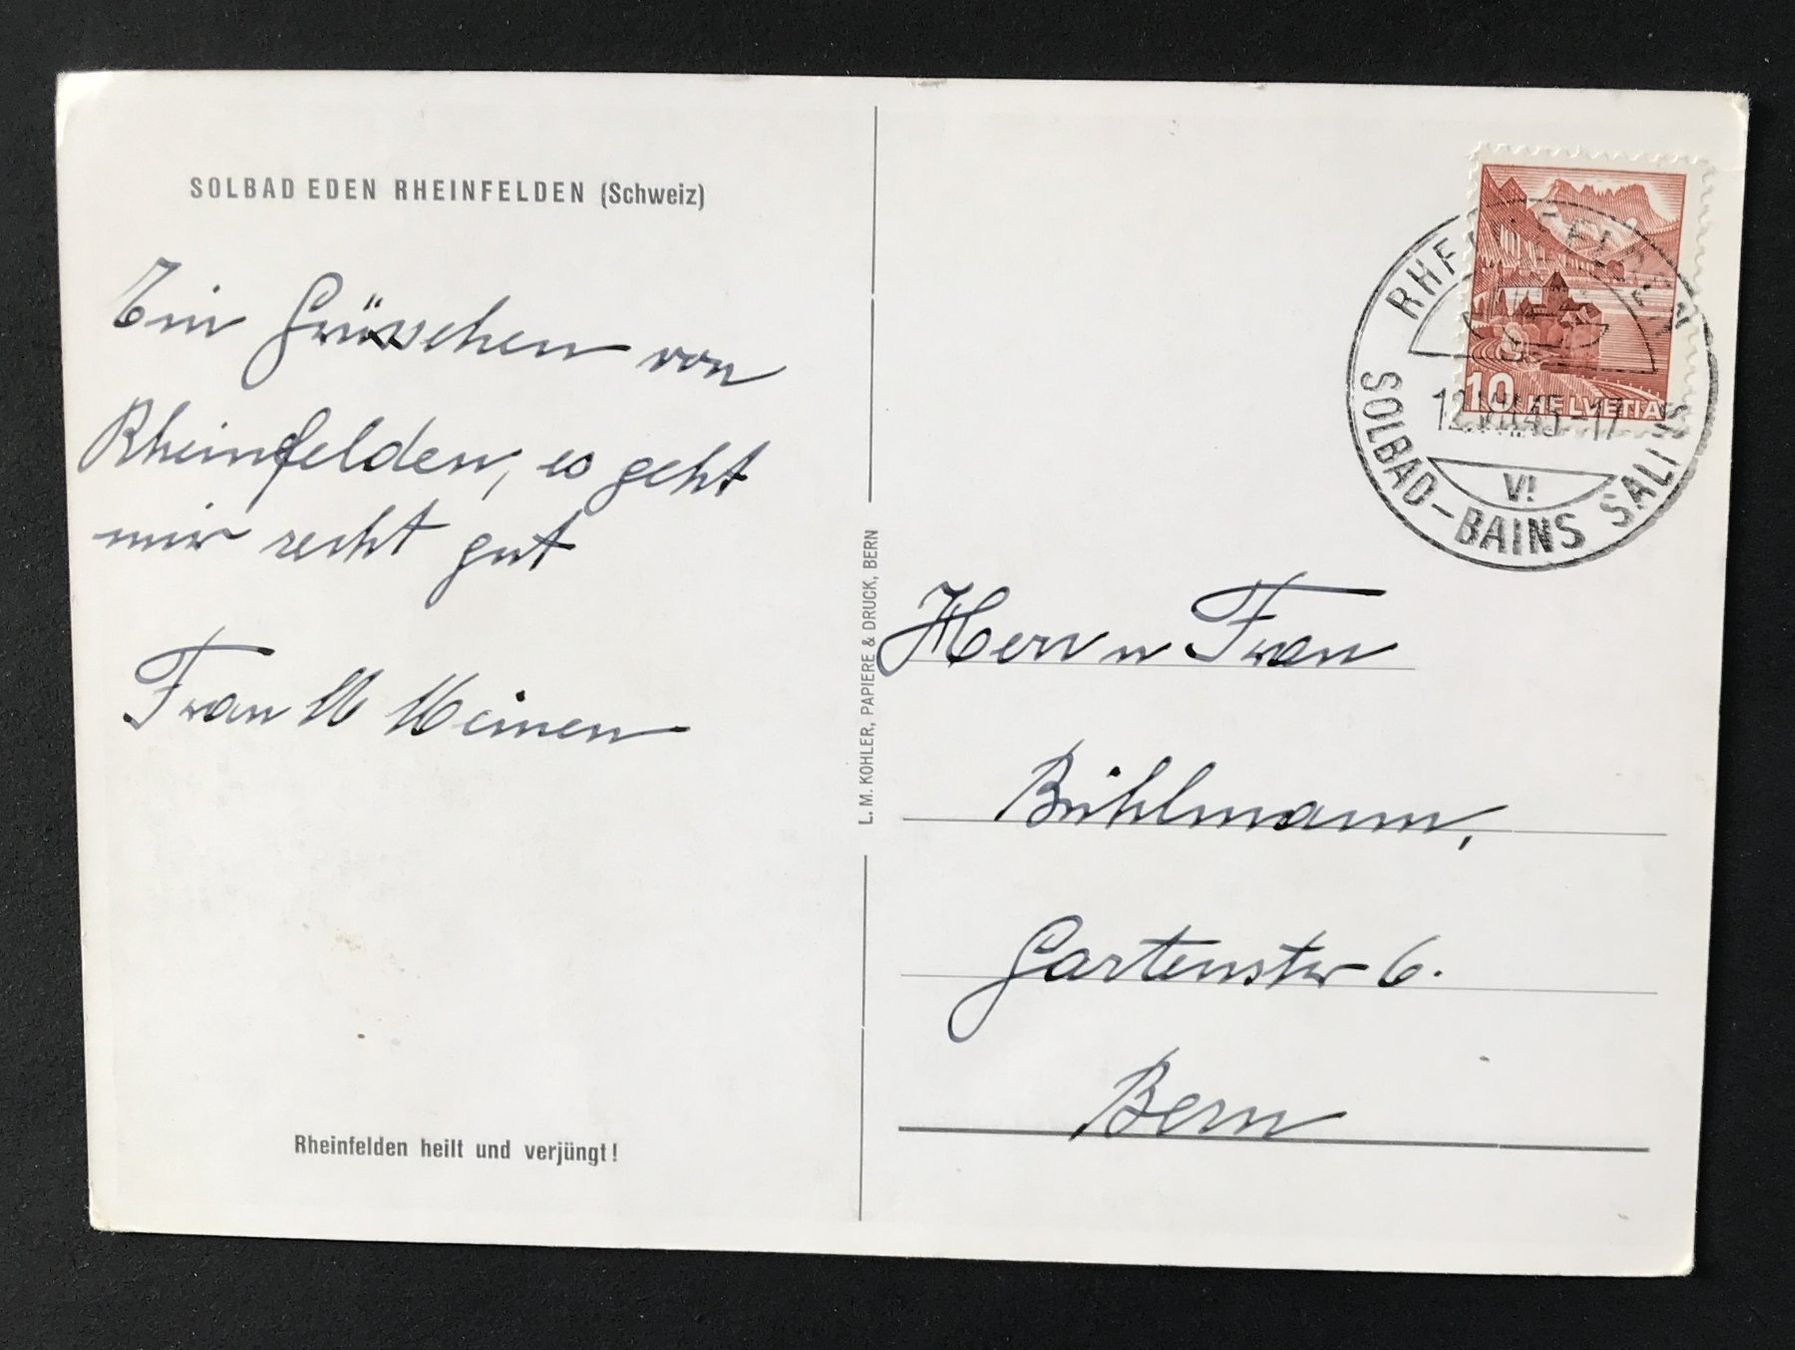 SOLBAD EDEN RHEINFELDEN (Schweiz)
Ein Grüsschen von
Rheinfelden, es geht
mir recht gut
Frau M Meinen
Rheinfelden heilt und verjüngt!
L. M. KOHLER, PAPIERE & DRUCK, BERN
10 HELVETIA
RHEINFELDEN
12.VIII.45-17
VI
SOLBAD-BAINS SALINS
Herr u Frau
Bühlmann,
Gartenstr 6.
Bern